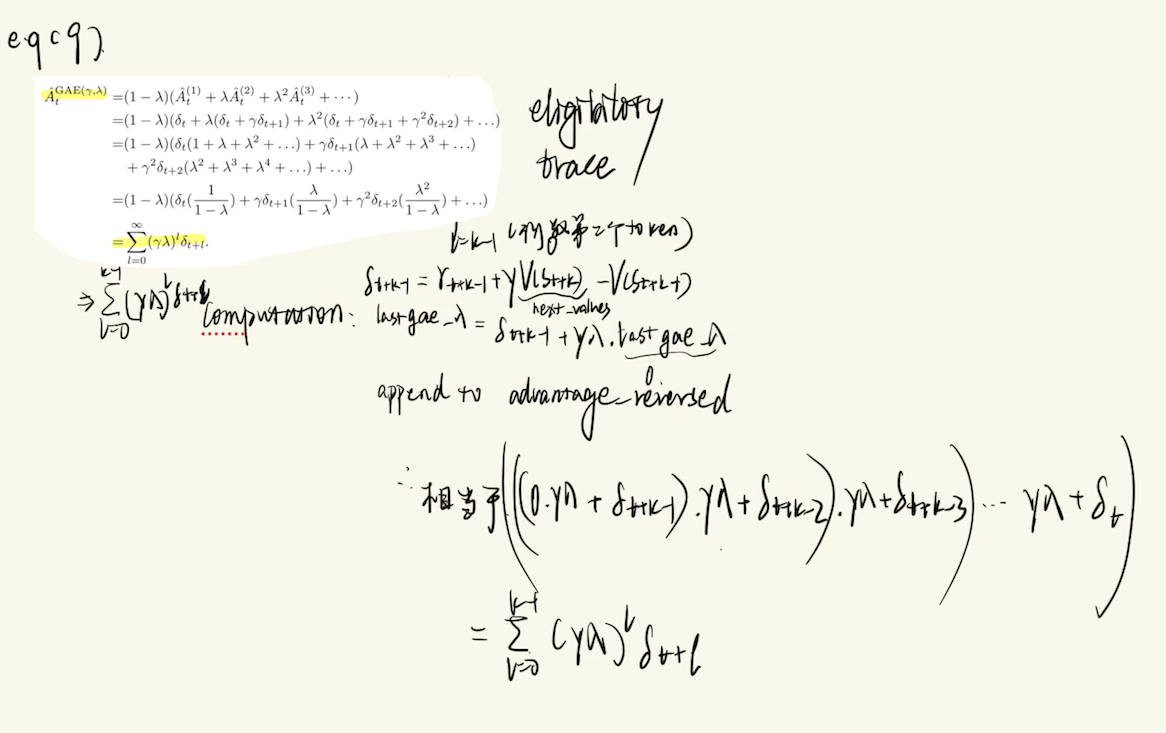 eq(9)
Â_t^{GAE(γ,λ)} =(1 − λ)(Â_t^{(1)} + λÂ_t^{(2)} + λ²Â_t^{(3)} + ···)
=(1 − λ)(δ_t + λ(δ_t + γδ_{t+1}) + λ²(δ_t + γδ_{t+1} + γ²δ_{t+2}) + ...)
=(1 − λ)(δ_t(1 + λ + λ² + ...) + γδ_{t+1}(λ + λ² + λ³ + ...)
+ γ²δ_{t+2}(λ² + λ³ + λ⁴ + ...) + ...)
=(1 − λ)(δ_t(1/(1 − λ)) + γδ_{t+1}(λ/(1 − λ)) + γ²δ_{t+2}(λ²/(1 − λ)) + ...)
=∑_{l=0}^{∞}(γλ)^l δ_{t+l}.
eligibitory
trace
⇒ ∑_{l=0}^{k-1}(γλ)^l δ_{t+l}
l=k-1 (倒数第二个token)
Computation: δ_{t+k-1} = r_{t+k-1} + γV(S_{t+k}) - V(S_{t+k-1})
next_values
lastgae_λ = δ_{t+k-1} + γλ.lastgae_λ
0
append to advantage_reversed
∴ 相当于(((0.γλ + δ_{t+k-1}).γλ + δ_{t+k-2}).γλ + δ_{t+k-3})... γλ + δ_t)
= ∑_{l=0}^{k-1} (γλ)^l δ_{t+l}